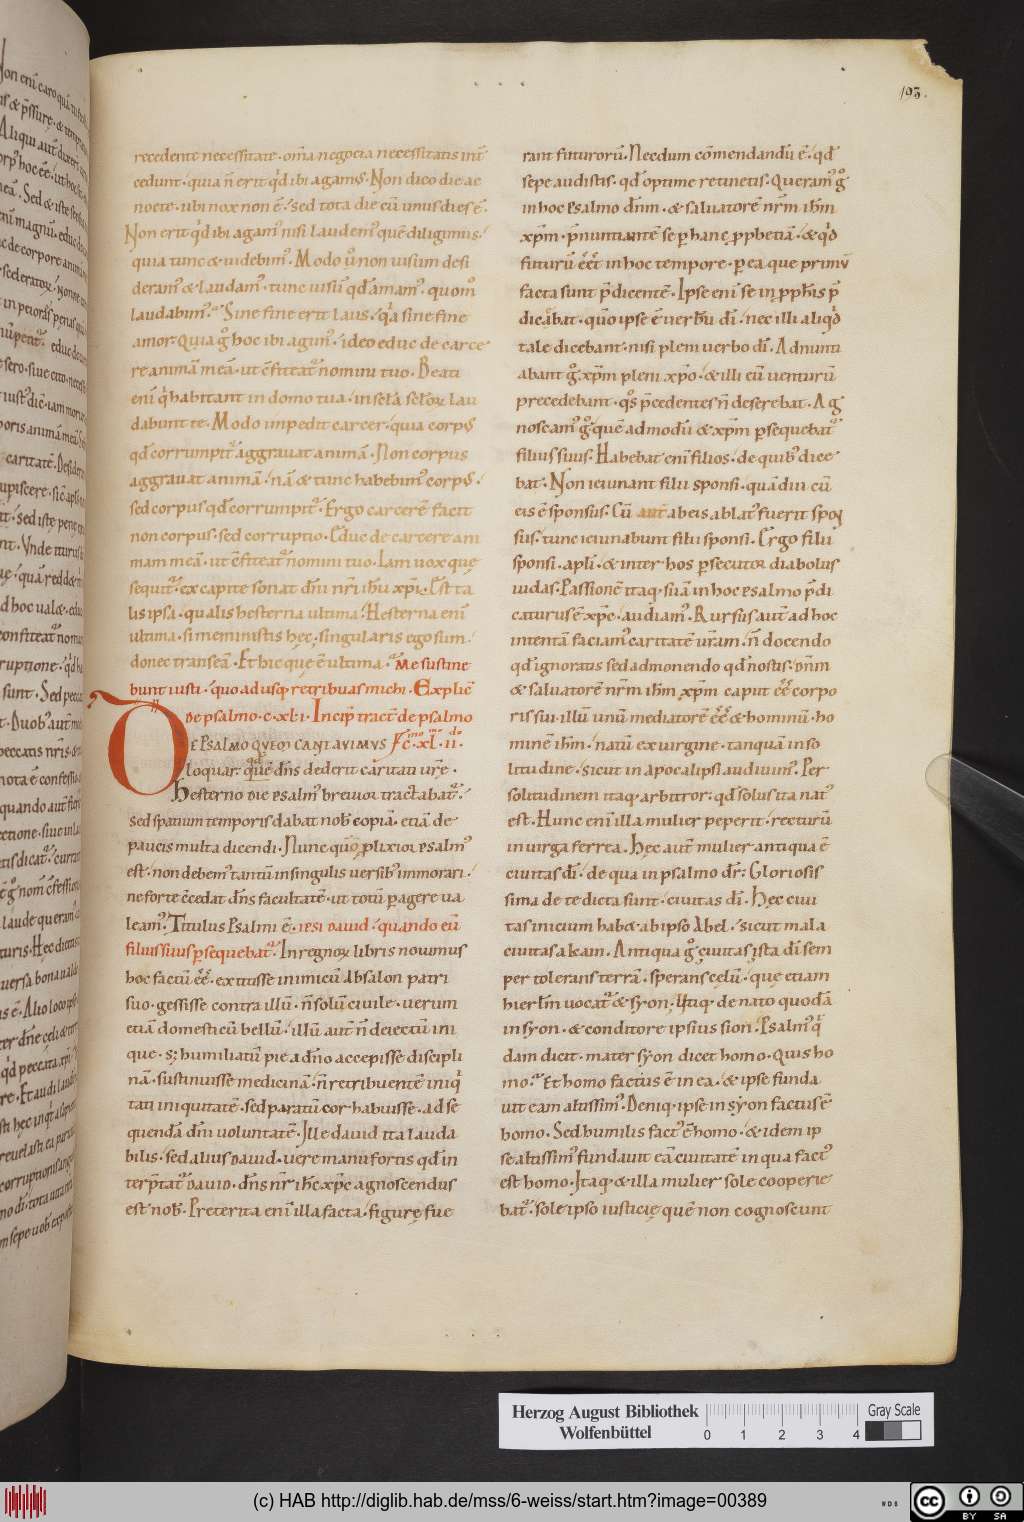 193.
recedente necessitate· om̄a negocia necessitatis int̄
cedunt· quia n̄ erit qd ibi agamꝰ· Non dico die ac
nocte· ubi nox non ē· sed tota die cū unus dies ē·
Non erit qd ibi agamꝰ nisi laudemꝰ quē diligimus·
quia tunc & uidebimꝰ· Modo ū non uisum desi
deramꝰ & laudamꝰ· tunc uisū qd amamꝰ· quom̄
laudabimꝰ· Sine fine erit laus· qa sine fine
amor· Quia g̊ hoc ibi agimꝰ· ideo educ de carce
re animā meā· ut c̄fiteat̄ nomini tuo· Beati
eni qui habitant in domo tua· in scl̄a scl̄oꝝ lau
dabunt te· Modo impedit carcer· quia corpꝰ
qd corrumpit̄ aggrauat animā· Non corpus
aggrauat animā· nā & tunc habebimꝰ corpꝰ·
sed corpus qd corrumpit̄· Ergo carcerē facit
non corpus· sed corruptio· Educ de carcere ani
mam meā· ut c̄fiteat̄ nomini tuo· Iam uox quę
sequit̄· ex capite sonat dn̄i nr̄i ihū xp̄i· Est ta
lis ipsa· qualis hesterna ultima· Hesterna eni
ultima· si meministis hęc· singularis ego sum·
donec transeā· Et hic quę ē ultima· Me sustine
bunt iusti· quo adusq; retribuas michi· Explic̄
de psalmo·c·xl·i· Incip̄ tract̄ de psalmo
DE PSALMO QVEM CANTAVIMVS c̄·xl·ii·
loquar· que dn̄s dederit caritati ur̄e·
Hesterno die psalmꝰ breuior tractabat̄·
sed spatium temporis dabat nob̄ copia· etiā de
paucis multa dicendi· Nunc qm̄ plixior psalmꝰ
est· non debemꝰ tantū in singulis uersibꝰ immorari·
ne forte c̄cedat dn̄s facultatē· ut totū pagere ua
leamꝰ· Titulus Psalmi ē· ipsi dauid· quando eū
filius suus psequebat̄· In regnoꝝ libris nouimus
hoc factū ee· extitisse inimicū absalon patri
suo· gessisse contra illū· n̄ solū ciuile· uerum
etiā domesticū bellū· illū aut̄ n̄ deiectū ini
que· s; humiliatū pie a dn̄o accepisse discipli
nā· sustinuisse medicinā· n̄ retribuentē iniq
tati iniquitatē· sed paratū cor habuisse· ad se
quendā dn̄i uoluntatē· Ille dauid ita lauda
bilis· sed alius dauid· uere manu fortis qd in
terp̄tat̄ dauid· dn̄s nr̄ ihc xp̄c agnoscendus
est nob̄· Preterita eni illa facta· figurę fue
rant futuroru· Necdum cōmendandū ē· qd
sepe audistis· qd optime retinetis· Queramꝰ g̊
in hoc psalmo dn̄m· & saluatorē nr̄m ihm̄
xp̄m· p̄nuntiantē se p hanc pphetiā· & qd
futurū eet in hoc tempore· p ea que primū
facta sunt p̄dicentē· Ipse eni se in pphis p̄
dicabat· qm̄ ipse ē uerbū di· nec illi aliqd
tale dicebant· nisi pleni uerbo di· Adnunti
abant g̊ xp̄m pleni xp̄o· & illi eū uenturū
precedebant· qs p̄cedentes n̄ deserebat· Ag
noscamꝰ g̊ quē admodū & xp̄m psequebat̄
filius suus· Habebat eni filios· de quibꝰ dice
bat· Non ieiunant filii sponsi· quādiu cū
eis ē sponsus· Cū aut̄ ab eis ablatꝰ fuerit spon
sus· tunc ieiunabunt filii sponsi· Ergo filii
sponsi· apl̄i· & inter hos psecutor diabolus
iudas· Passionē itaq; suā in hoc psalmo p̄di
caturus ē xp̄c· audiamꝰ· Rursus aut̄ ad hoc
intentā faciamꝰ caritatē ur̄am· n̄ docendo
qd ignoratis sed admonendo qd nostis· dn̄m
& saluatorē nr̄m ihm̄ xp̄m caput eē corpo
ris sui· illū unū mediatorē eē di & hominū· ho
minē ihm̄· natū ex uirgine· tanquā in so
litudine· sicut in apocalipsi audiuimꝰ· Per
solitudinem itaq; arbitror· qd solus ita natꝰ
est· Hunc eni illa mulier peperit· recturū
in uirga ferrea· Hęc aut̄ mulier antiqua ē
ciuitas di· de qua in psalmo dr̄· Gloriosis
sima de te dicta sunt· ciuitas di· Hęc ciui
tas inicium habet· ab ipso Abel· sicut mala
ciuitas a kain· Antiqua g̊ ciuitas ista di sem
per tolerans terrā· sperans cęlū· que etiam
hierl̄m uocat̄ & syon· Utiq; de nato quodā
in syon· & conditore ipsius sion· Psalmꝰ q
dam dicit· mater syon dicet homo· Quis ho
mo· Et homo factus ē in ea· & ipse funda
uit eam altissimꝰ· Deniq; ipse in syon factus ē
homo· Sed humilis factꝰ ē homo· & idem ip
se altissimꝰ fundauit eā ciuitatē in qua factꝰ
est homo· Itaq; & illa mulier sole cooperie
bat̄· sole ipso iusticię quē non cognoscunt
Herzog August Bibliothek
Wolfenbüttel
0 1 2 3 4
Gray Scale
(c) HAB http://diglib.hab.de/mss/6-weiss/start.htm?image=00389
WDB
cc
BY SA